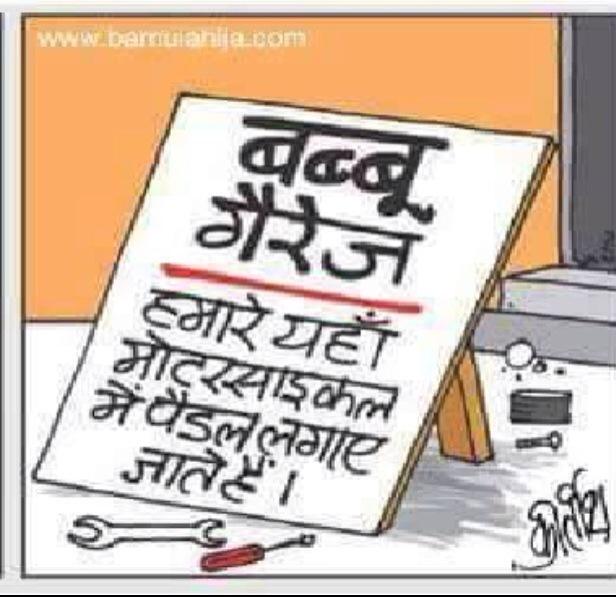 www.bamulahija.com
बब्बू
गैरेज
हमारे यहाँ
मोटरसाइकल
में पैडल लगाए
जाते हैं।